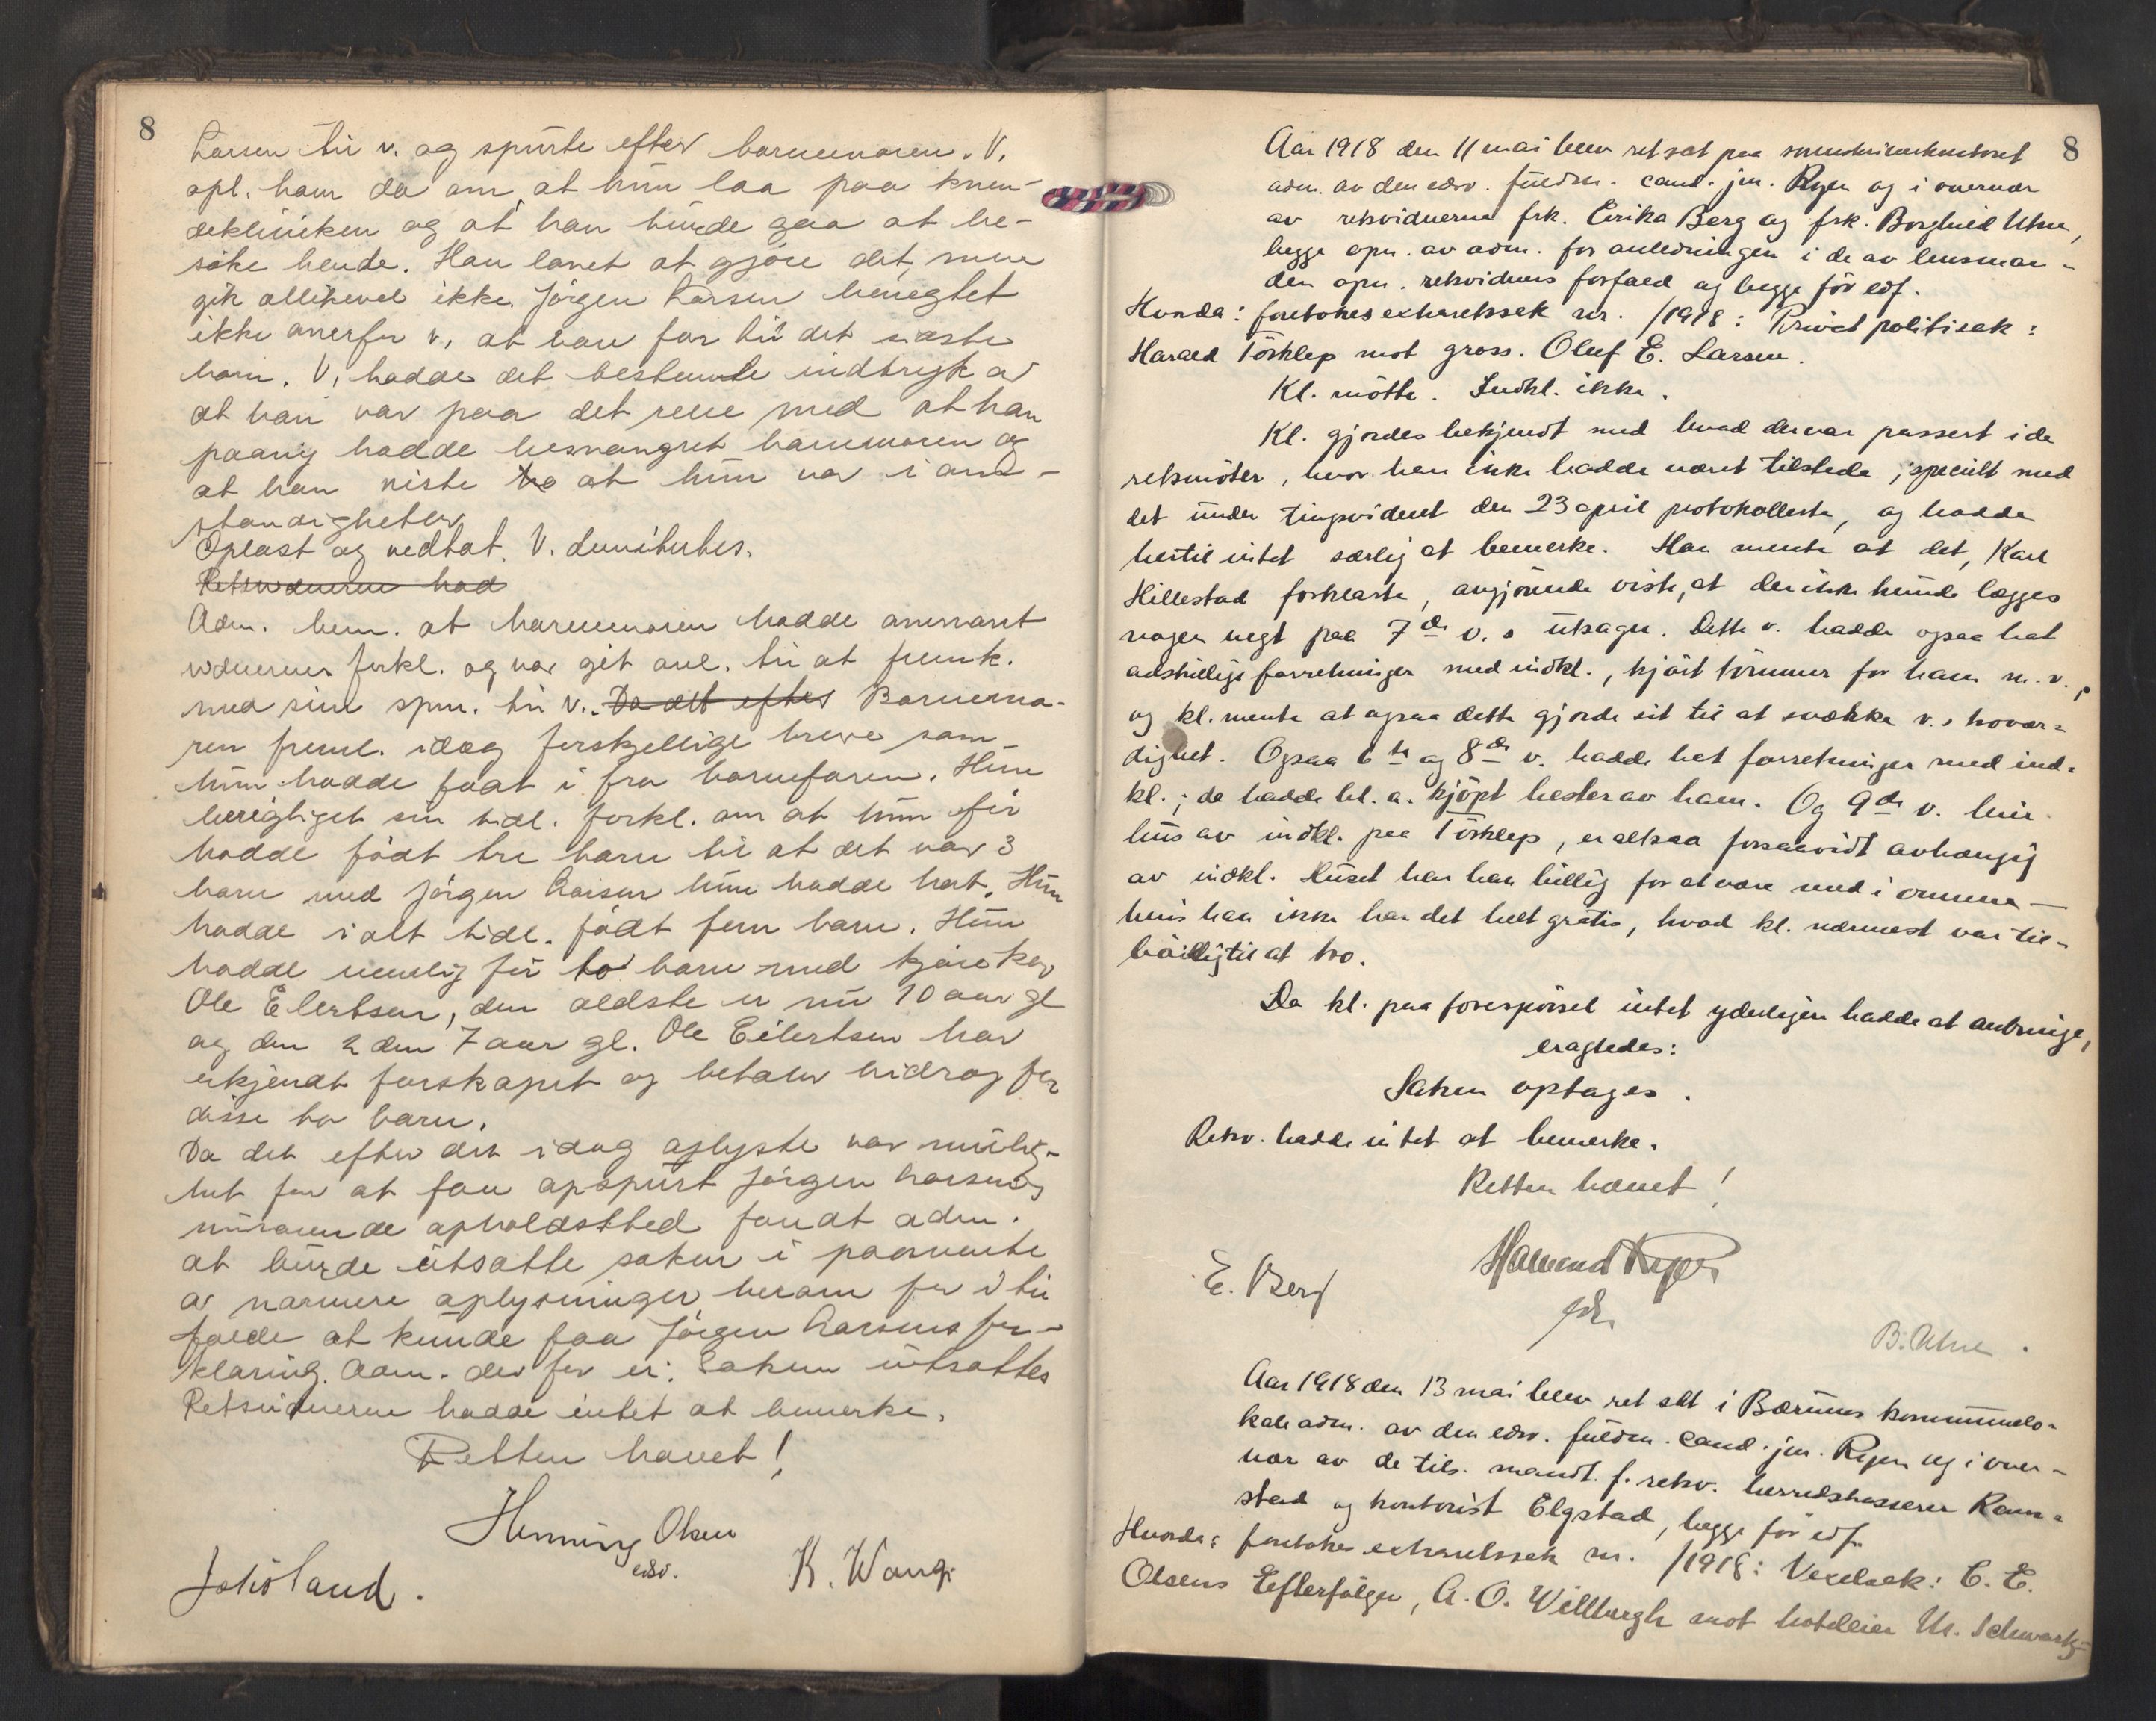 8
Larsen til v. og spurte efter barnemoren. V.
opl. ham da om, at hun laa paa kvin-
deklinikken og at han burde gaa at be-
søke hende. Han lovet at gjøre det, men
gik allikevel ikke. Jörgen Larsen benegtet
ikke overfor v. at være far til det siste
barn. V. hadde det bestemte indtryk av
at han var paa det rene med at han
paany hadde besvangret barnemoren og
at han visste at hun var i om-
stændigheter.
Oplæst og vedtat. V. demitertes.
Retsvidnerne had
Adm. bem. at barnemoren hadde overvært
vidnernes forkl. og var git anl. til at fremk.
med sine spm. til v. Da det eftes Barnemo-
ren freml. idag forskjellige breve som
hun hadde faat i fra barnefaren. Hun
berigtiget sin tidl. forkl. om at hun før
hadde født tre barn til at det var 3
barn med Jörgen Larsen hun hadde hat. Hun
hadde i alt tidl. født fem barn. Hun
hadde nemlig før to barn med kjøresker
Ole Eilertsen, den ældste er nu 10 aar gl
og den 2den 7 aar gl. Ole Eilertsen har
erkjendt farskapet og betaler bidrag for
disse to barn.
Da det efter det idag oplyste var mulig-
het for at faa opspurt Jörgen Larsens
nuværende opholdssted fandt adm.
at burde utsætte saken i paavente
av nærmere oplysninger herom for i til
fælde at kunde faa Jörgen Larsens for-
klaring. Adm. der for er: Saken utsættes
Retsvidnerne hadde intet at bemerke.
Retten hævet!
Henning Olsen
edsv.
K. Wang.
8
Aar 1918 den 11 mai blev ret sat paa sorenskriverkontoret
adm. av den edsv. fuldm. cand. jur. Ryen og i overvær
av retsvidnerne frk. Erika Berg og frk. Borghild Utne,
begge opn. av adm. for anledningen i de av lensman-
den opn. retsvidners forfald og begge før edf.
Hvorda: foretokes extraretssak nr. /1918: Privat politisak:
Harald Tösklep mot gross. Oluf E. Larsen.
Kl. mötte. Indkl. ikke.
Kl. gjordes bekjendt med hvad der var passert i de
retsmöter, hvor han ikke hadde været tilstede, specielt med
det under tingsvidnet den 23 april protokollerte, og hadde
hertil intet særlig at bemerke. Han mente at det, Karl
Hillestad forklarte, avgjörende viste, at der ikke kunde lægges
nogen vegt paa 7de v.s utsagn. Dette v. hadde ogsaa hat
adskillige forretninger med indkl., kjört tömmer for ham m.v.,
og kl. mente at ogsaa dette gjorde sit til at svække v.s trovær-
dighet. Ogsaa 6te og 8de v. hadde hat forretninger med ind-
kl.; de hadde bl.a. kjöpt hester av ham. Og 9de v. leier
hus av indkl. paa Tösklep, er altsaa forsaavidt avhængig
av indkl. Huset har han billig for at være med i onnene —
hvis han ikke har det helt gratis, hvad kl. nærmest var til-
böielig til at tro.
Da kl. paa forespörsel intet yderligere hadde at anbringe,
eragtedes:
Saken optages.
Retsv. hadde intet at bemerke.
Retten hævet!
E. Berg
B. Utne.
Aar 1918 den 13 mai blev ret sat i Bærums kommunelo-
kale adm. av den edsv. fuldm. cand. jur. Ryen og i over-
vær av de tils. mandt. f. retsv. herredskasserer Ram-
stad og kontorist Elgstad, begge för edf.
Hvorda: foretokes extraretssak nr. /1918: Vexelsak: C. E.
Olsens Efterfölger, A. O. Willbergh mot hotelleier Schwartz-